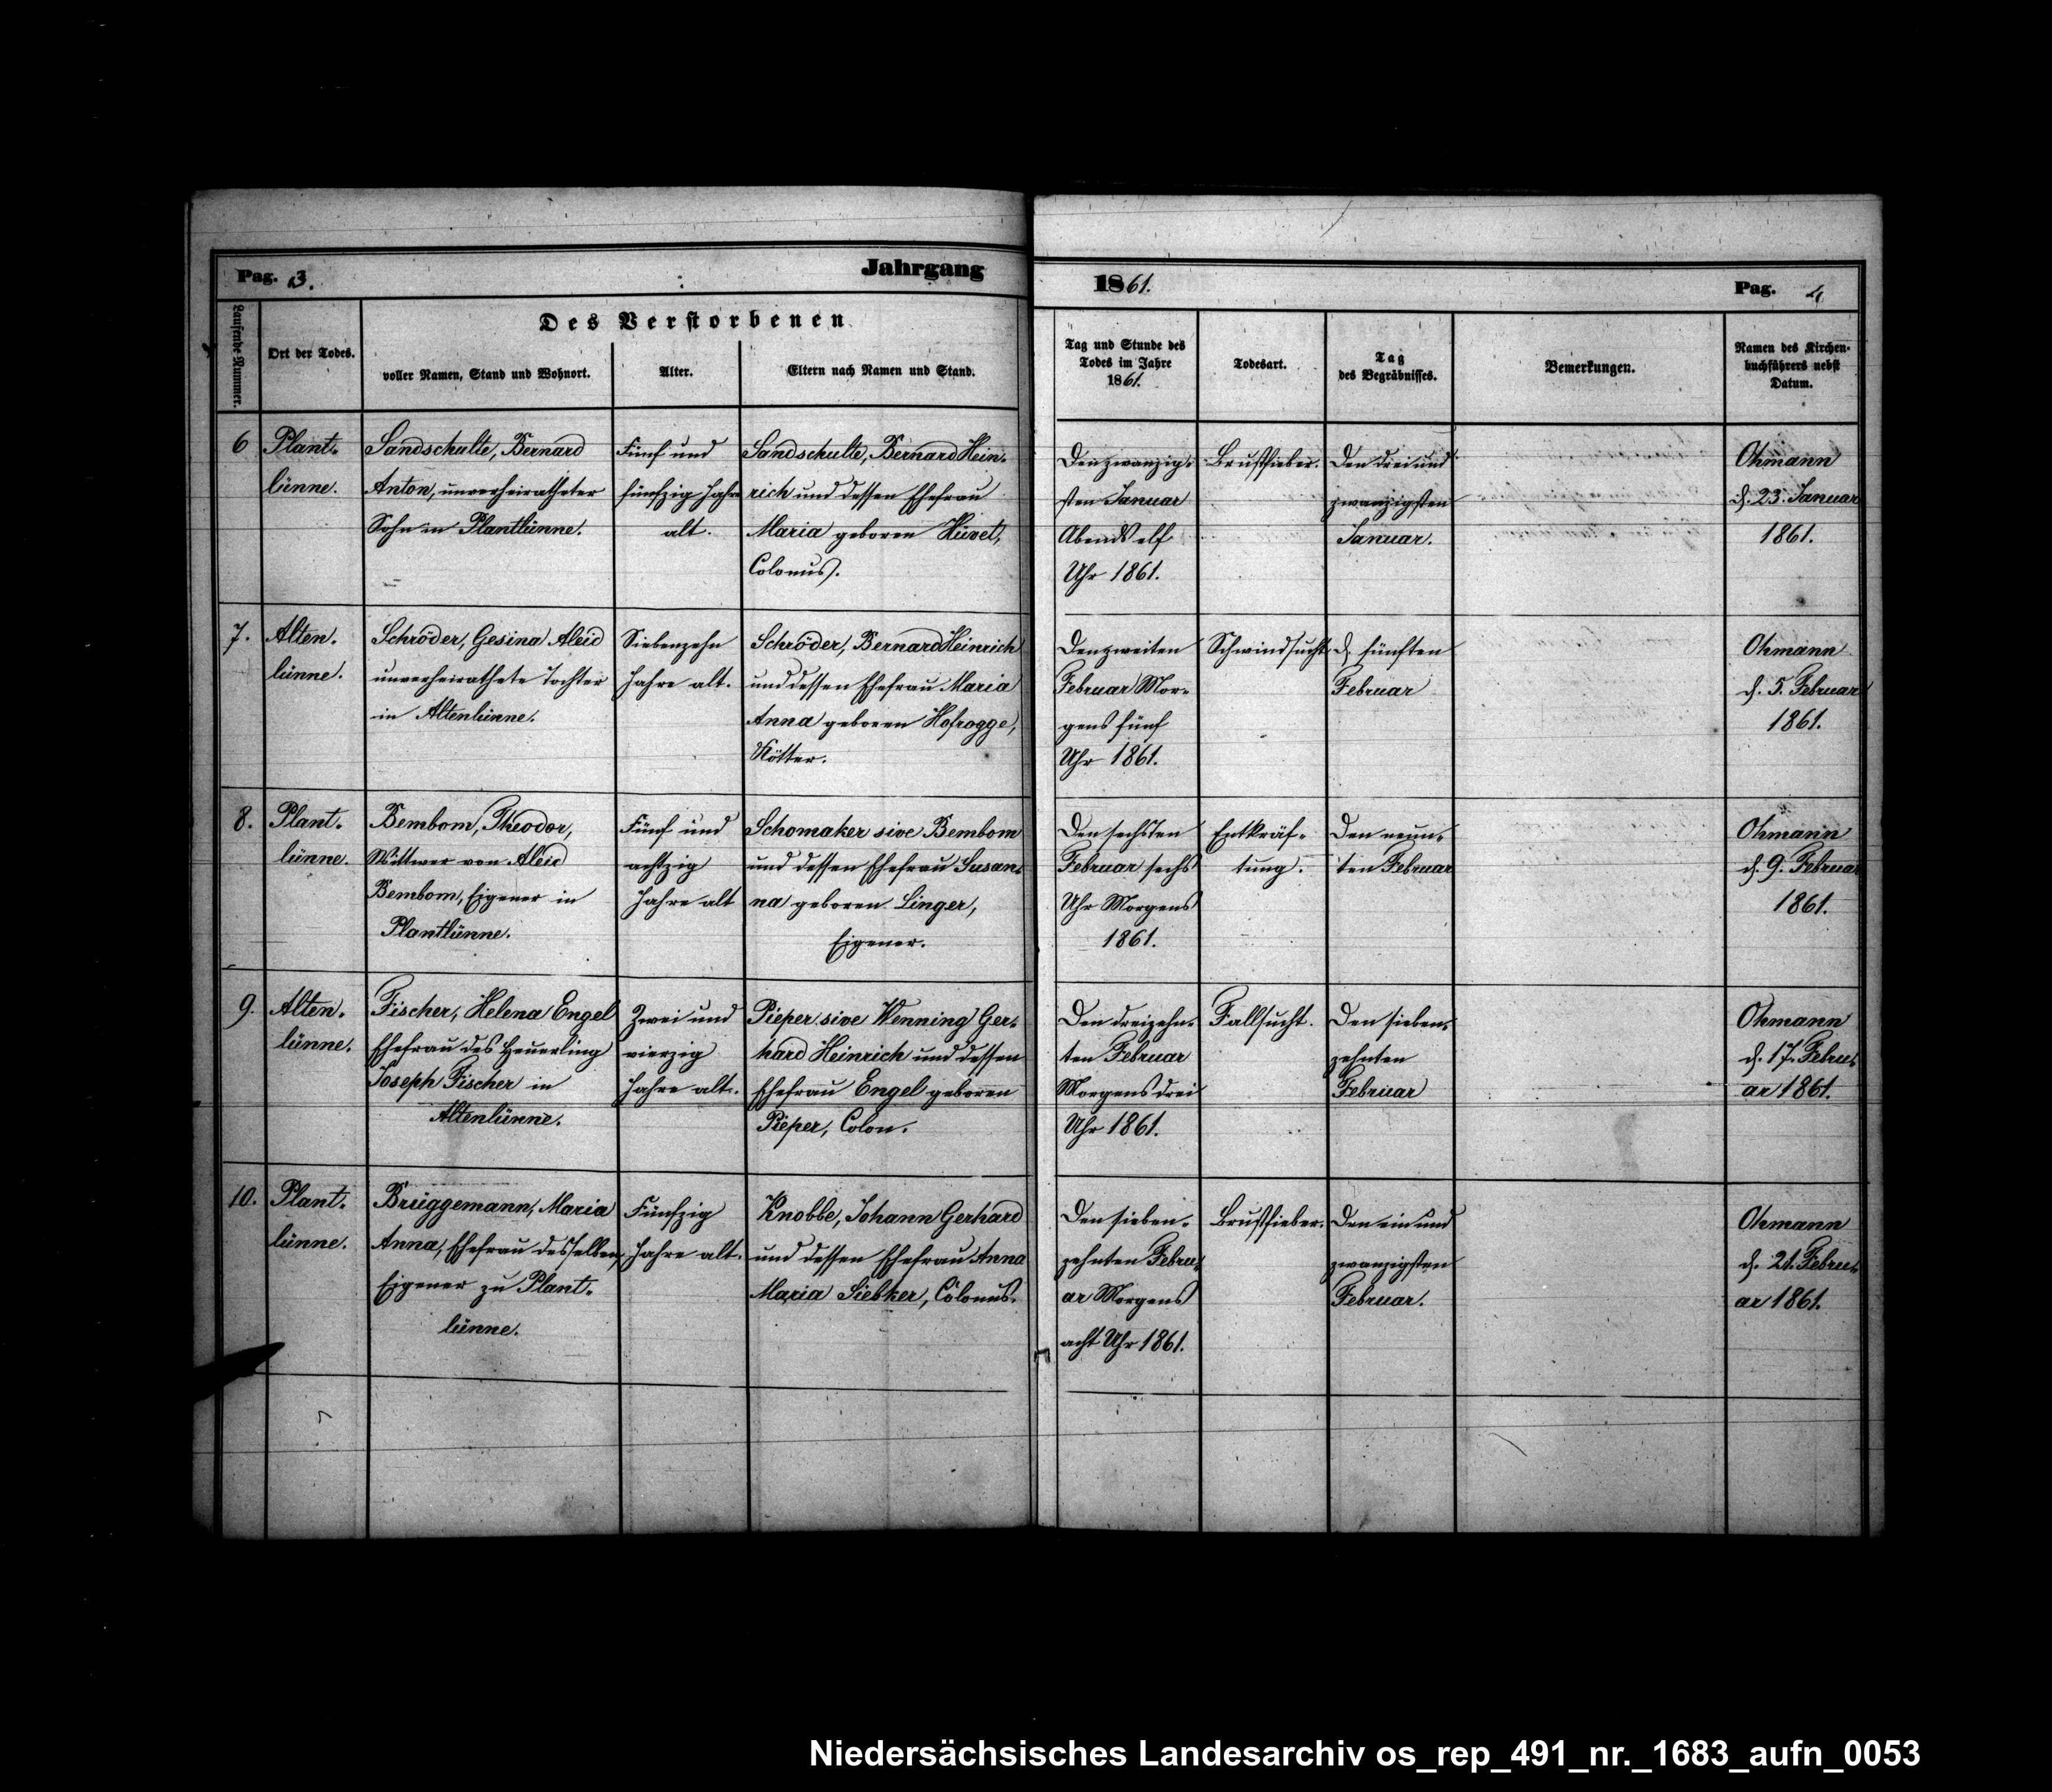 Pag. 3.
Jahrgang
1861.
Pag. 4
Laufende Nummer.
Ort der Todes.
Des Verstorbenen
voller Namen, Stand und Wohnort.
Alter.
Eltern nach Namen und Stand.
Tag und Stunde des
Todes im Jahre
1861.
Todesart.
Tag
des Begräbnisses.
Bemerkungen.
Namen des Kirchen-
buchführers nebst
Datum.
6
Plant-
lünne.
Sandschulte, Bernard
Anton, unverheiratheter
Sohn in Plantlünne.
Fünf und
fünfzig Jahre
alt.
Sandschulte, Bernard Hein-
rich und dessen Ehefrau
Maria geboren Hüvet,
Colonus.
Den zwanzig-
sten Januar
Abends elf
Uhr 1861.
Brustfieber.
Den drei und
zwanzigsten
Januar.
Ohmann
d. 23. Januar
1861.
7.
Alten-
lünne.
Schröder, Gesina Aleid
unverheirathete Tochter
in Altenlünne.
Siebenzehn
Jahre alt.
Schröder, Bernard Heinrich
und dessen Ehefrau Maria
Anna geboren Hofrogge,
Kötter.
Den zweiten
Februar Mor-
gens fünf
Uhr 1861.
Schwindsucht
d. fünften
Februar
Ohmann
d. 5. Februar
1861.
8.
Plant-
lünne.
Bembom, Theodor,
Wittwer von Aleid
Bembom, Eigener in
Plantlünne.
Fünf und
achtzig
Jahre alt
Schomaker sive Bembom
und dessen Ehefrau Susan-
na geboren Linger,
Eigener.
Den sechsten
Februar sechs
Uhr Morgens
1861.
Entkräf-
tung.
Den neun-
ten Februar
Ohmann
d. 9. Februar
1861.
9.
Alten-
lünne.
Fischer, Helena Engel
Ehefrau des Heuerling
Joseph Fischer in
Altenlünne.
Zwei und
vierzig
Jahre alt.
Pieper sive Wenning Ger-
hard Heinrich und dessen
Ehefrau Engel geboren
Pieper, Colon.
Den dreizehn-
ten Februar
Morgens drei
Uhr 1861.
Fallsucht.
Den sieben-
zehnten
Februar
Ohmann
d. 17. Febru-
ar 1861.
10.
Plant-
lünne.
Brüggemann, Maria
Anna, Ehefrau desselben,
Eigener zu Plant-
lünne.
Fünfzig
Jahre alt.
Knobbe, Johann Gerhard
und dessen Ehefrau Anna
Maria Siebker, Colonus.
Den sieben-
zehnten Febru-
ar Morgens
acht Uhr 1861.
Brustfieber.
Den ein und
zwanzigsten
Februar.
Ohmann
d. 21. Febru-
ar 1861.
Niedersächsisches Landesarchiv os_rep_491_nr._1683_aufn_0053